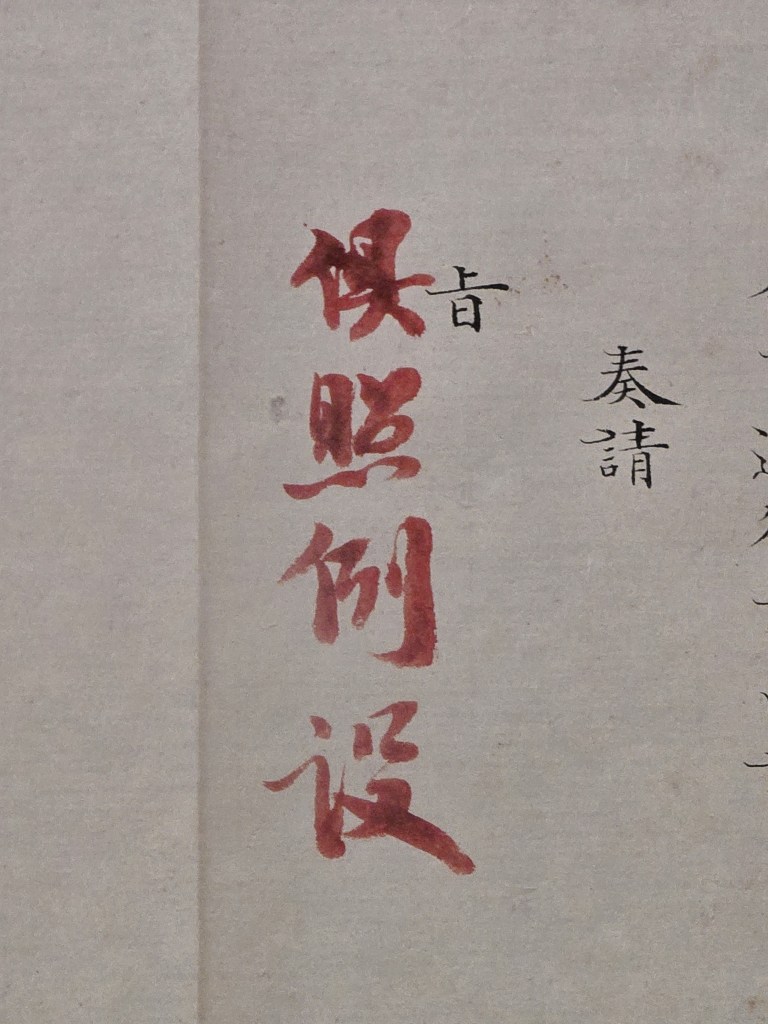 奏請
旨
俱照例設